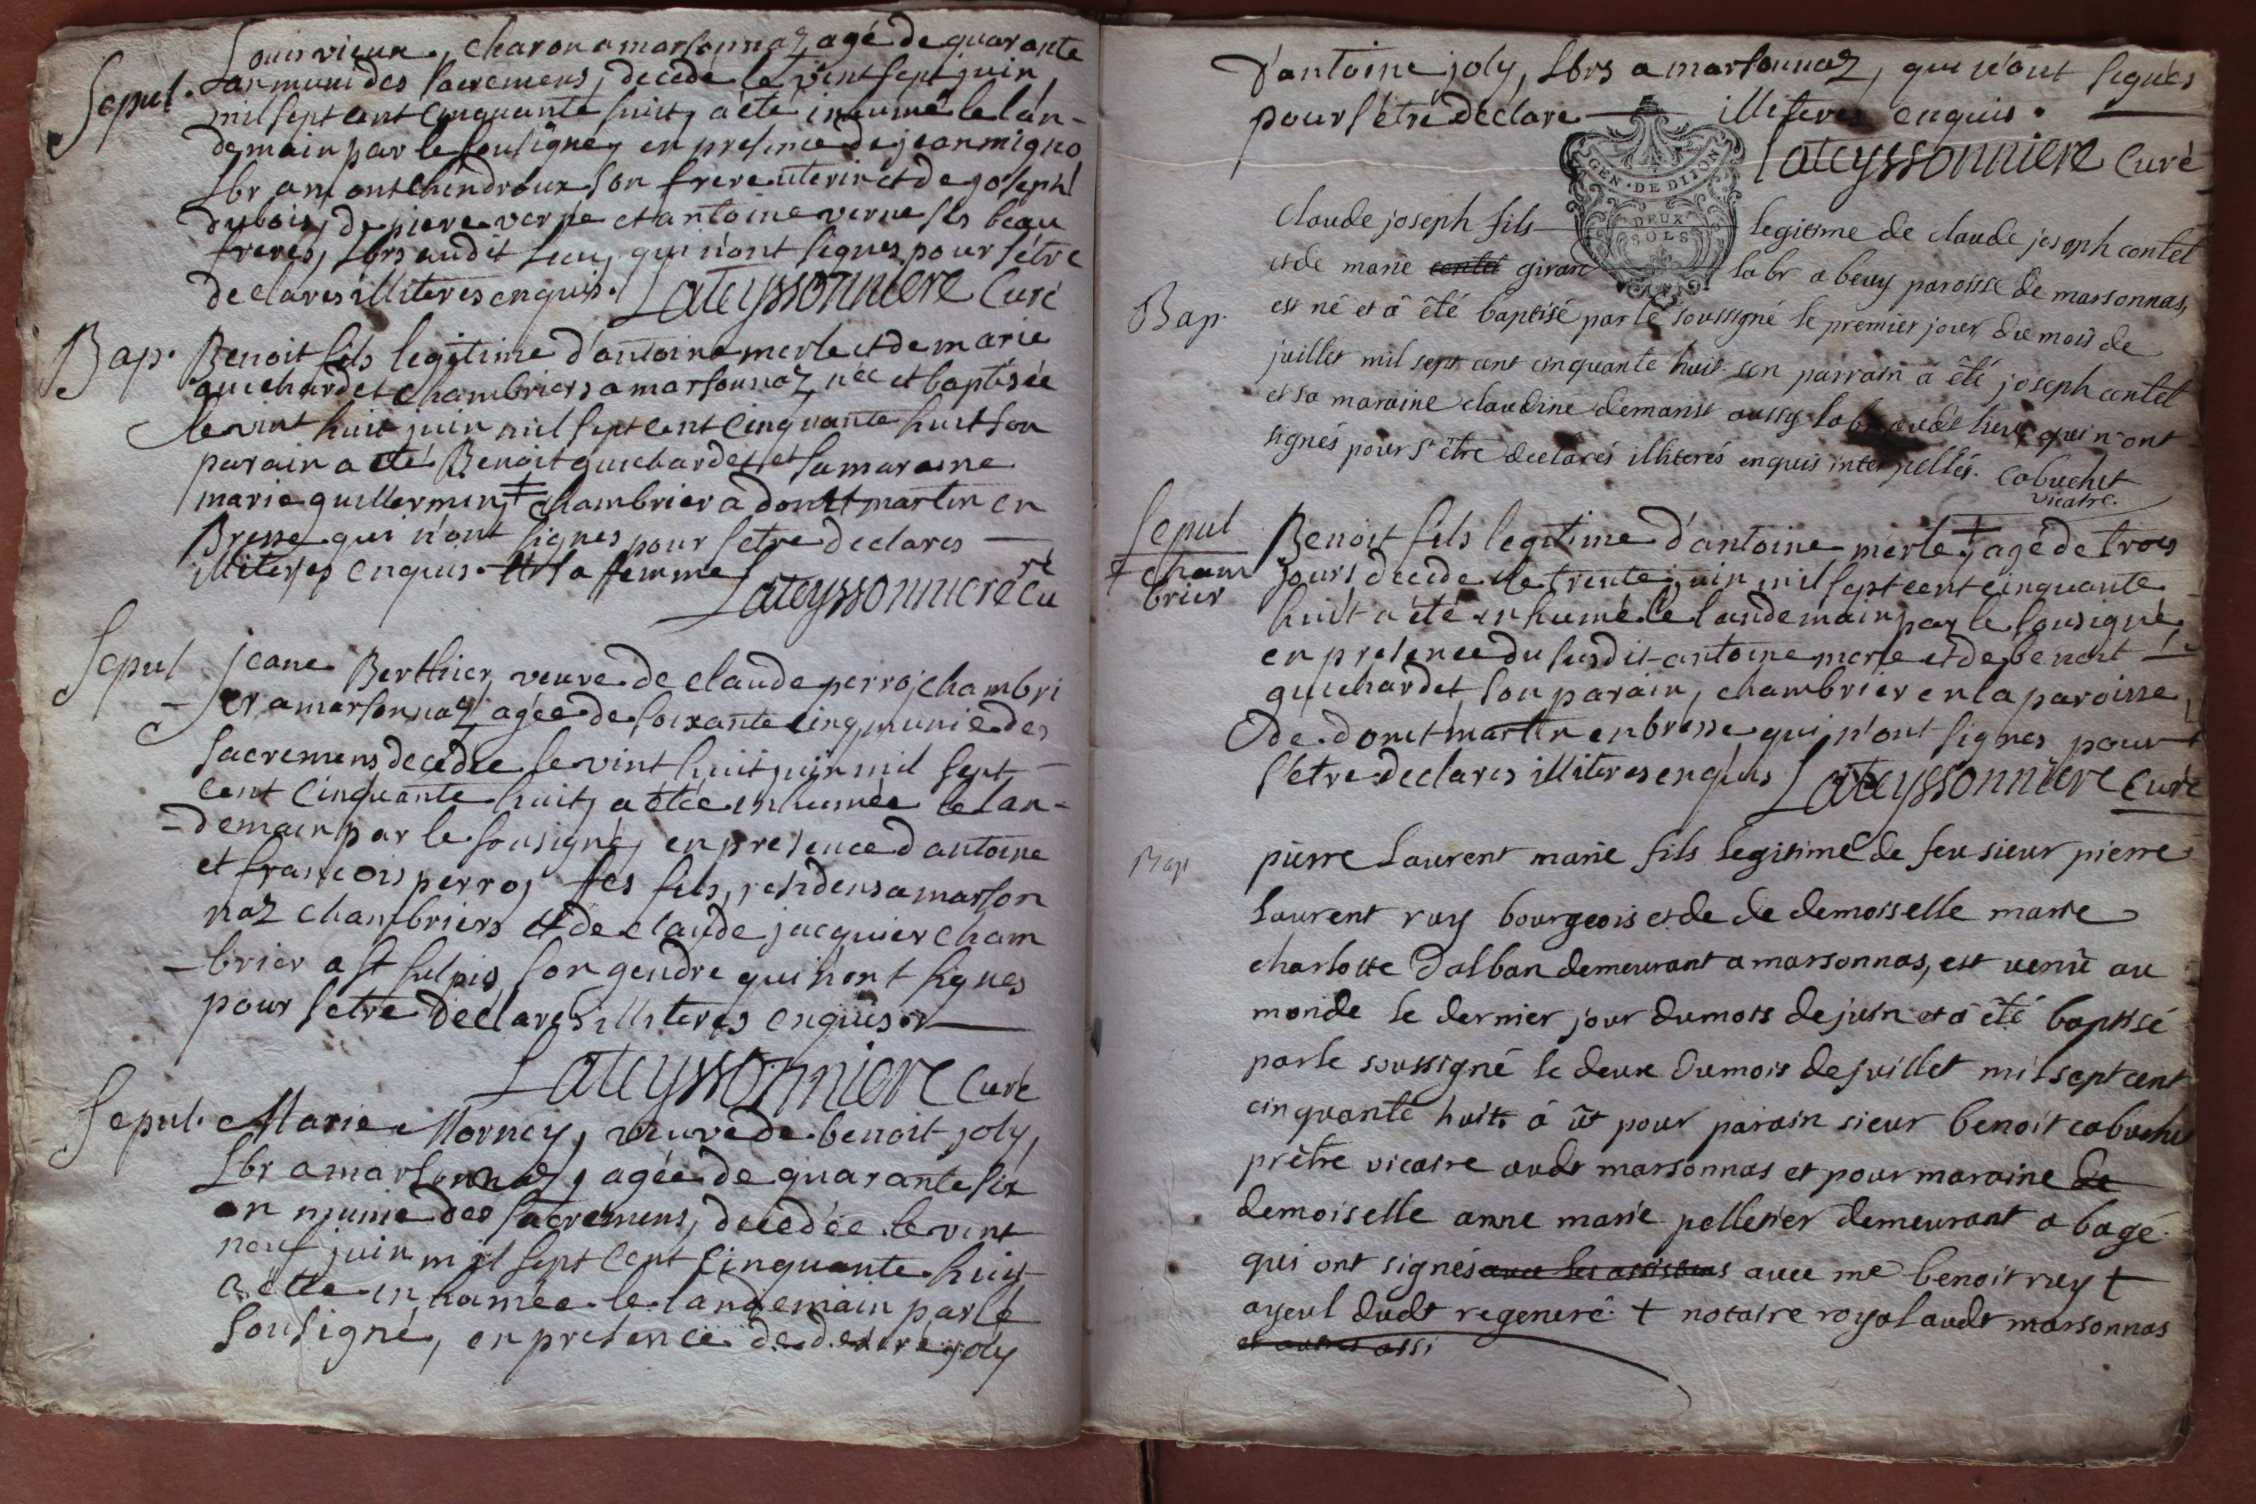 Louis vieux, charon a marsonnaz, agé de quarante
Sepul. an muni des sacremens, decedé le vint sept juin
mil sept cent cinquante huit, a été inhumé le lan-
demain par le sousigné, en presence de jean migno
Lbr a montchindroux son frere uterin et de joseph
dubois, de piere verne et antoine verne ses beau
freres, Lbrs audit lieu, qui n'ont signes pour s'étre
declares illiteres enquis. Lateyssonniere Curé
Bap. Benoit fils legitime d'antoine merle et de marie
guichardet chambriers a marsonnaz née et baptisée
le vint huit juin mil sept cent cinquante huit son
parain a eté Benoit guichardet et sa maraine
marie guillermin, ‡ chambrier a dont martin en
Bresse qui n'ont signes pour s'etre declares
illiteres enquis. ‡ sa femme
Lateyssonniere Curé
Sepul jeane Berthier, veuve de claude perro, chambri
er a marsonnaz, agée de soixante cinq, munie des
sacremens decedée le vint huit juin mil sept
cent cinquante huit, a étée inhumée le lan-
-demain par le sousigné, en presence d'antoine
et francois perro, ses fils, residens a marson
naz chambriers et de claude jacquier cham
-brier a st sulpis, son gendre qui n'ont signes
pour s'etre declares illiteres enquis
Lateyssonniere Curé
Sepul. Marie Morney, veuve de benoit joly,
Lbr a marsonnaz, agée de quarante six
an munie des sacremens, decedée le vint
neuf juin mil sept cent cinquante huit
a ette inhumée le landemain par le
sousigné, en presence de joly
d'antoine joly, Lbrs a marsonnaz, qui n'ont signés
pour s'étre declare illiteres enquis.
GEN. DE DIJON
DEUX
SOLS
Lateyssonniere Curé
claude joseph fils legitime de claude joseph contet
et de marie contet girar labr a beuy paroisse de marsonnas,
Bap. est né et â êté baptisé par le soussigné le premier jour du mois de
juillet mil sept cent cinquante huit. son parrain a êté joseph contet
et sa maraine claudine demarist aussy lab audt lieu qui n'ont
signés pour s'être declarés illiterés enquis interpellés. cabuchet
vicaire.
Sepul Benoit fils legitime d'antoine merle, ‡ agé de trois
‡ cham
brier
jours decede le trente juin mil sept cent cinquante
huit a été inhumé le landemain par le sousigné,
en presence du susdit antoine merle et de benoit
guichardet, son parain, chambrier en la paroisse
de domt martin en bresse qui n'ont signes pour
s'etre declares illiteres enquis Lateyssonniere Curé
Bap pierre Laurent marie fils legitime de feu sieur pierre
Laurent ruy bourgeois et de de demoiselle marie
charlotte dalban demeurant a marsonnas, est venû au
monde le dernier jour du mois de juin et â êté baptisé
par le soussigné le deux du mois de juillet mil sept cent
cinquante huit. â ût pour parain sieur benoit cabuchet
prêtre vicaire audt marsonnas et pour maraine de
demoiselle anne marie pelletier demeurant a bagé.
qui ont signés avec les assistans avec me benoit ruy †
ayeul dudt regeneré. † notaire royal audt marsonnas
et autres assi